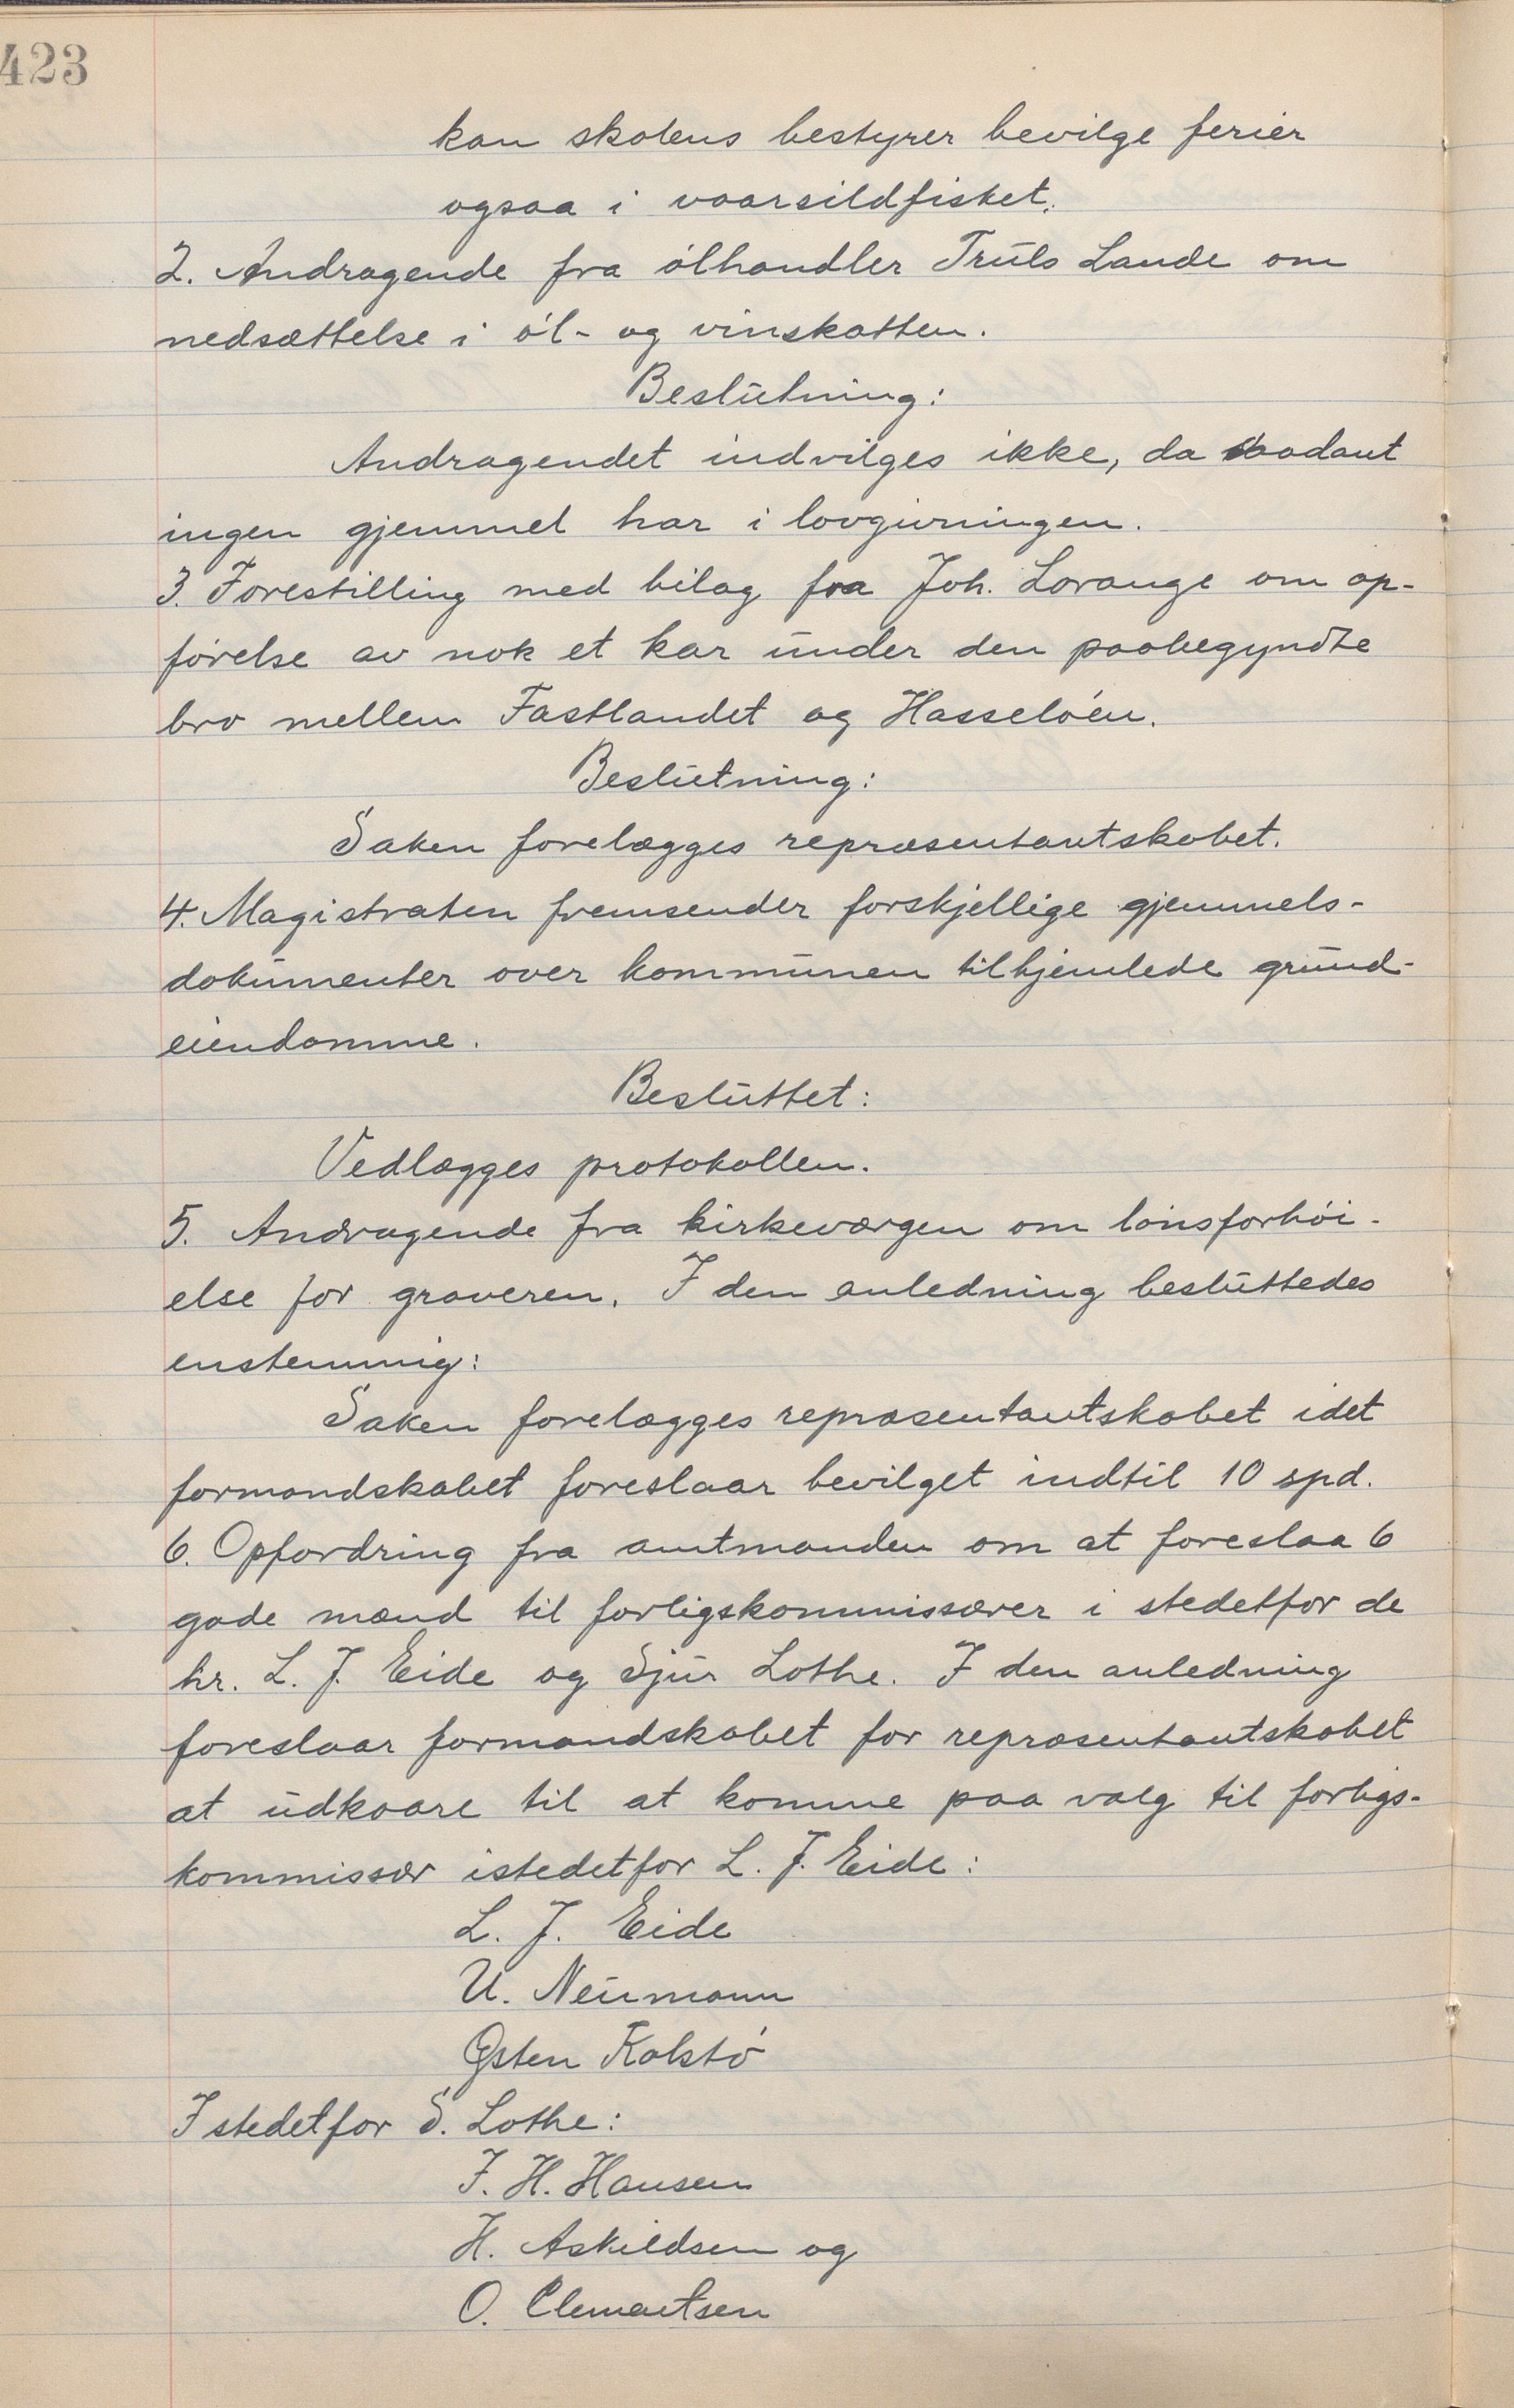 423
kan skolens bestyrer bevilge ferier
ogsaa i vaarsildfisket.
2. Andragende fra ölhandler Truls Lande om
nedsættelse i öl- og vinskatten.
Beslutning:
Andragendet indvilges ikke, da saadant
ingen hjemmel har i lovgivningen.
3. Forestilling med bilag fra Joh. Lorange om op-
förelse av nok et kar under den paabegyndte
bro mellem Fastlandet og Hasselöen.
Beslutning:
Saken forelægges repræsentantskabet.
4. Magistraten fremsender forskjellige hjemmels-
dokumenter over kommunen tilhjemlede grund-
eiendomme.
Besluttet:
Vedlægges protokollen.
5. Andragende fra kirkeværgen om lönsforhöi-
else for graveren. I den anledning besluttedes
enstemmig:
Saken forelægges repræsentantskabet idet
formandskabet foreslaar bevilget indtil 10 spd.
6. Opfordring fra amtmanden om at foreslaa 6
gode mænd til forligskommissærer i stedetfor de
hr. L. J. Eide og Sjur Lothe. I den anledning
foreslaar formandskabet for repræsentantskabet
at udkaare til at komme paa valg til forligs-
kommissær istedetfor L. J. Eide:
L. J. Eide
U. Neumann
Østen Kolstö
I stedetfor S. Lothe:
J. H. Hansen
H. Askildsen og
O. Clementsen